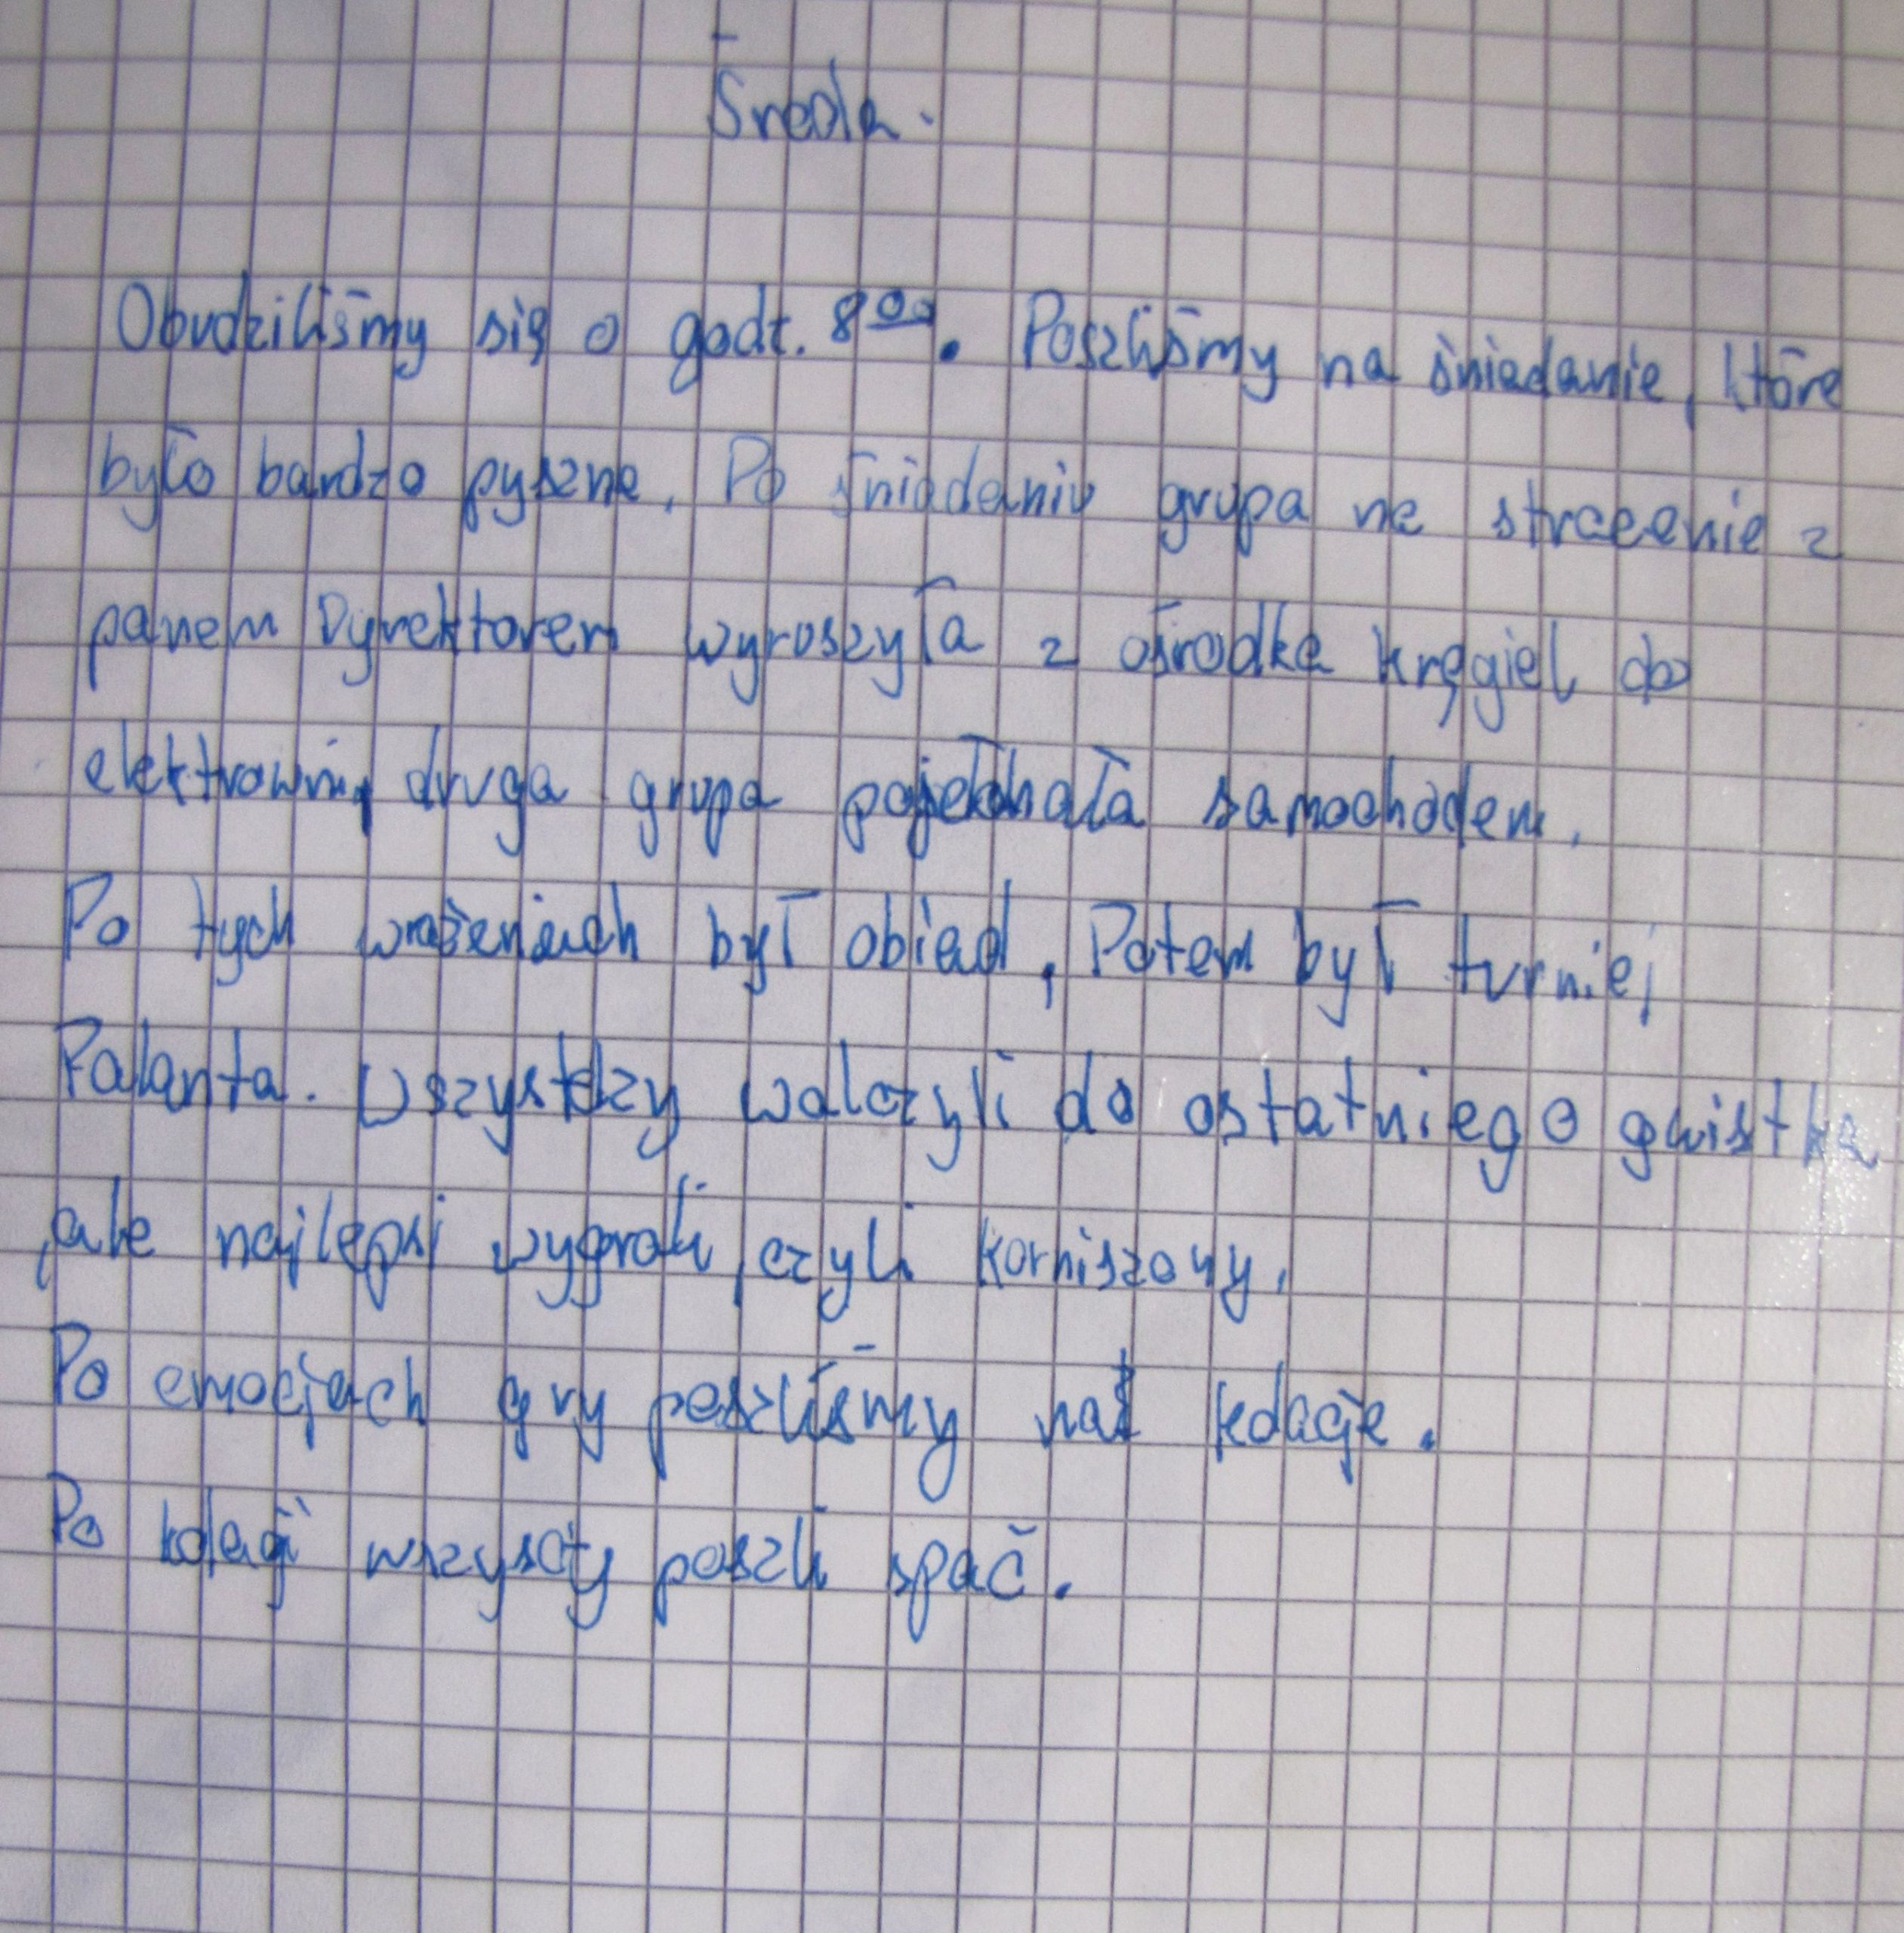 Środa.
Obudziliśmy się o godz. 8⁰⁰. Poszliśmy na śniadanie, które
było bardzo pyszne. Po śniadaniu grupa na stracenie z
panem Dyrektorem wyruszyła z ośrodka Kręgiel do
elektrowni, druga grupa pojechała samochodem.
Po tych wrażeniach był obiad, Potem był turniej
Palanta. Wszystkzy walczyli do ostatniego gwistka
,ale najlepsi wygrali, czyli Korniszony.
Po emocjach gry poszliśmy na kolacje.
Po kolacji wszyscy poszli spać.